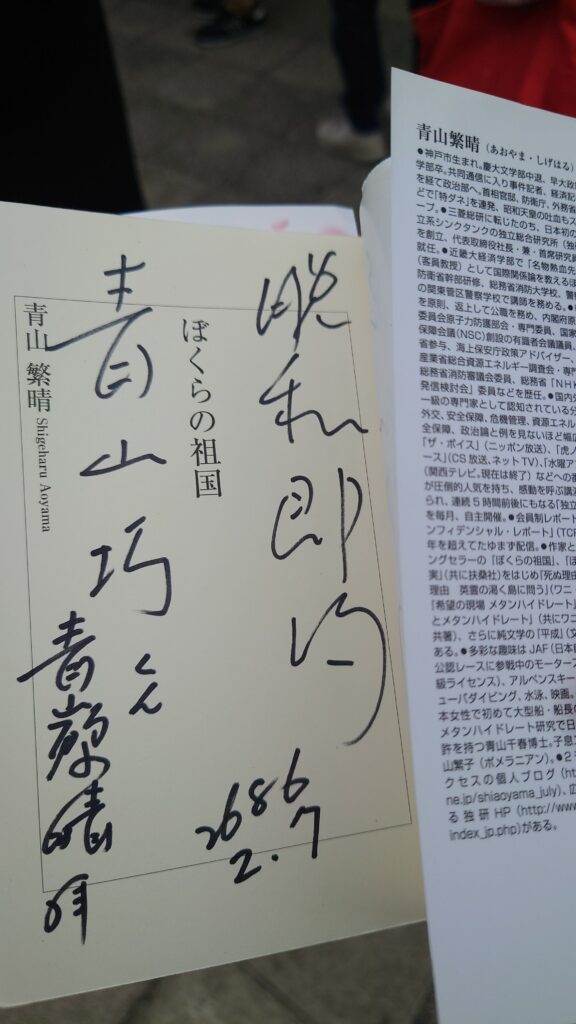 脱私即的
ぼくらの祖国
青山 繁晴 Shigeharu Aoyama
青山 巧 くん
青山繁晴 拝
2686
2.7
青山繁晴（あおやま・しげはる）
●神戸市生まれ。慶大文学部中退、早大政
学部卒。共同通信に入り事件記者、経済記
を経て政治部へ。首相官邸、防衛庁、外務省
どで「特ダネ」を連発、昭和天皇の吐血もス
ープ。●三菱総研に転じたのち、日本初の
立系シンクタンクの独立総合研究所（独
を創立、代表取締役社長・兼・首席研究
就任。●近畿大経済学部で「名物熱血先
（客員教授）として国際関係論を教えるほ
防衛省幹部研修、総務省消防大学校、警
の関東管区警察学校で講師を務める。●
を原則、返上して公職を務め、内閣府原
委員会原子力防護部会・専門委員、国家
保障会議（NSC）創設の有識者会議議員、
省参与、海上保安庁政策アドバイザー、
産業省総合資源エネルギー調査会・専門
総務省消防審議会委員、総務省「NH
発信検討会」委員などを歴任。●国内外
一級の専門家として認知されている分
外交、安全保障、危機管理、資源エネル
全保障、政治論と例を見ないほど幅
「ザ・ボイス」（ニッポン放送）、「虎ノ
ース」（CS放送、ネットTV）、「水曜ア
（関西テレビ。現在は終了）などへの
が圧倒的人気を持ち、感動を呼ぶ講
られ、連続5時間前後にもなる「独立
を毎月、自主開催。●会員制レポート
ンフィデンシャル・レポート」（TC
年を超えてたゆまず配信。●作家と
ングセラーの「ぼくらの祖国」、「ぼ
実」（共に扶桑社）をはじめ「死ぬ理由
理由 英霊の渇く島に問う」（ワニ
「希望の現場 メタンハイドレート」
とメタンハイドレート」（共にワニ
共著）、さらに純文学の「平成」（文
ある。●多彩な趣味はJAF（日本
公認レースに参戦中のモータース
級ライセンス）、アルペンスキー
ューバダイビング、水泳、映画。
本女性で初めて大型船・船長の
メタンハイドレート研究で日
許を持つ青山千春博士。子息
山繁子（ポメラニアン）。●2
クセスの個人ブログ（ht
ne.jp/shiaoyama_july)、広
る独研HP（http://www
index_jp.php)がある。